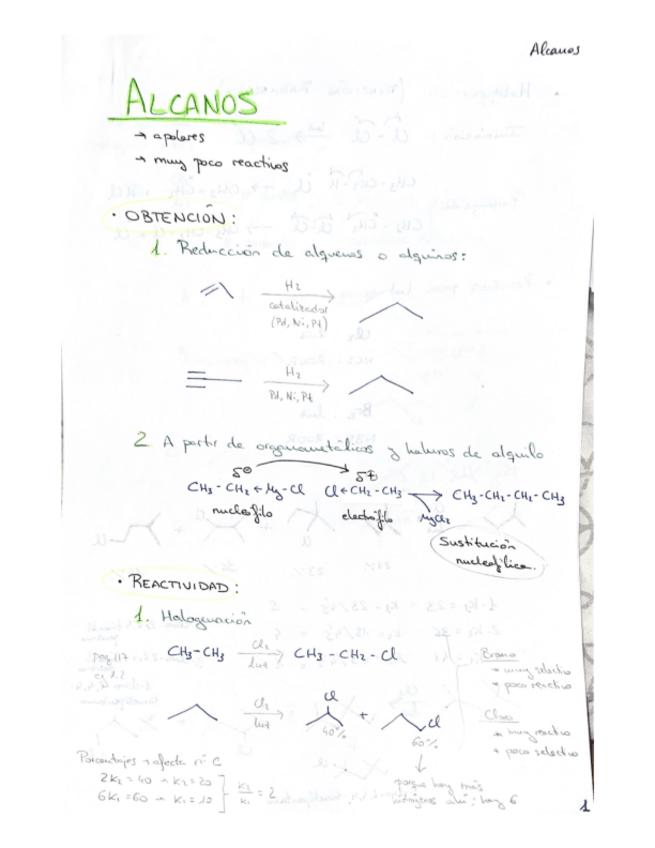 Alcanos
ALCANOS
→ apolares
→ muy poco reactivos
· OBTENCIÓN:
1. Reducción de alquenos o alquinos:
H2
catalizador
(Pd, Ni, Pt)
H2
Pd, Ni, Pt
2 A partir de organometálicos y haluros de alquilo
δ⊖ δ⊕
CH3-CH2←Mg-Cl Cl←CH2-CH3 → CH3-CH2-CH2-CH3
nucleófilo electrófilo MgCl2
Sustitución
nucleofílica.
· REACTIVIDAD:
1. Halogenación
pag 117
CH3-CH3 Cl2 luz → CH3-CH2-Cl
Bromo
→ muy selectivo
→ poco reactivo
Cl2
luz
Cl
40%
+
Cl
60%
Cloro
→ muy reactivo
→ poco selectivo
Porcentajes → afecta nº C
2K2 = 40 → K2 = 20
6K1 = 60 → K1 = 10
K2/K1 = 2
porque hay más
hidrógenos ahí; hay 6
1